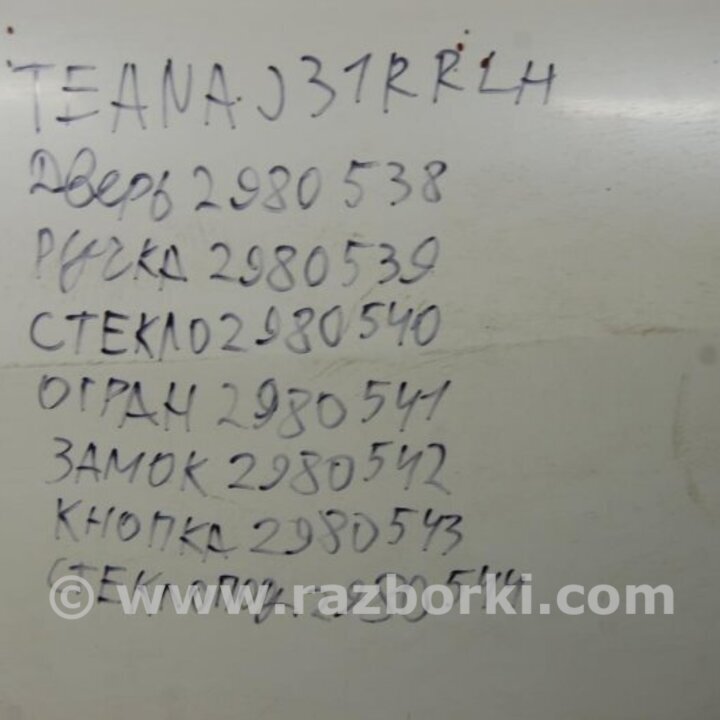 TEANA J31 RR LH
Дверь 2980538
РУЧКА 2980539
СТЕКЛО 2980540
ОГРАН 2980541
ЗАМОК 2980542
КНОПКА 2980543
СТЕКЛОПОД. 2980544
© www.razborki.com